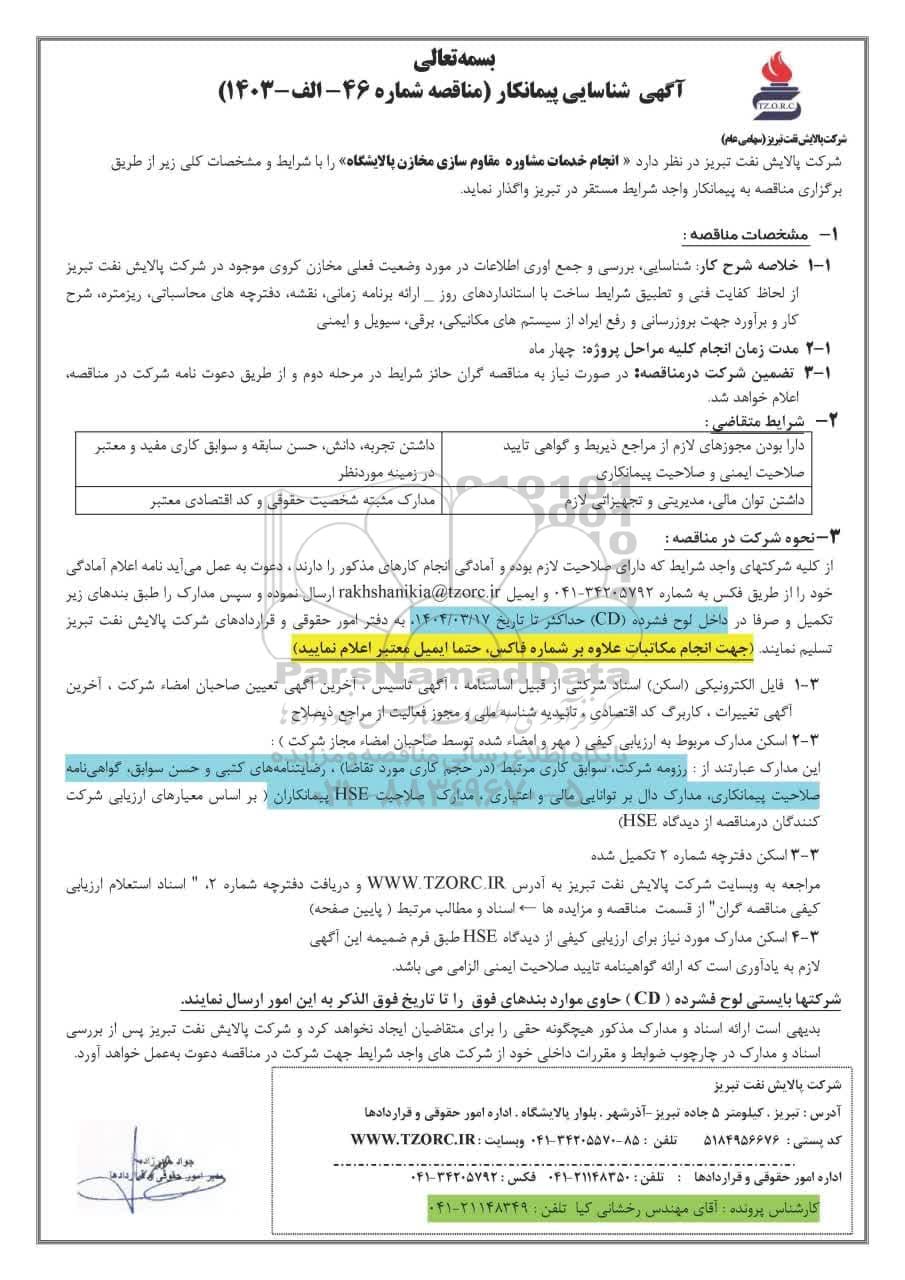 بسمه‌تعالی
آگهی شناسایی پیمانکار (مناقصه شماره ۴۶- الف-۱۴۰۳)
TZ.O.R.C.
شرکت پالایش نفت تبریز (سهامی عام)
شرکت پالایش نفت تبریز در نظر دارد « انجام خدمات مشاوره مقاوم سازی مخازن پالایشگاه» را با شرایط و مشخصات کلی زیر از طریق
برگزاری مناقصه به پیمانکار واجد شرایط مستقر در تبریز واگذار نماید.
۱- مشخصات مناقصه :
۱-۱ خلاصه شرح کار: شناسایی، بررسی و جمع اوری اطلاعات در مورد وضعیت فعلی مخازن کروی موجود در شرکت پالایش نفت تبریز
از لحاظ کفایت فنی و تطبیق شرایط ساخت با استانداردهای روز _ ارائه برنامه زمانی، نقشه، دفترچه های محاسباتی، ریزمتره، شرح
کار و برآورد جهت بروزرسانی و رفع ایراد از سیستم های مکانیکی، برقی، سیویل و ایمنی
۱-۲ مدت زمان انجام کلیه مراحل پروژه: چهار ماه
۱-۳ تضمین شرکت درمناقصه: در صورت نیاز به مناقصه گران حائز شرایط در مرحله دوم و از طریق دعوت نامه شرکت در مناقصه،
اعلام خواهد شد.
۲- شرایط متقاضی :
دارا بودن مجوزهای لازم از مراجع ذیربط و گواهی تایید داشتن تجربه، دانش، حسن سابقه و سوابق کاری مفید و معتبر
صلاحیت ایمنی و صلاحیت پیمانکاری در زمینه موردنظر
داشتن توان مالی، مدیریتی و تجهیزاتی لازم مدارک مثبته شخصیت حقوقی و کد اقتصادی معتبر
۳-نحوه شرکت در مناقصه :
از کلیه شرکتهای واجد شرایط که دارای صلاحیت لازم بوده و آمادگی انجام کارهای مذکور را دارند ، دعوت به عمل می‌آید نامه اعلام آمادگی
خود را از طریق فکس به شماره ۳۴۲۰۵۷۹۲-۰۴۱ و ایمیل rakhshanikia@tzorc.ir ارسال نموده و سپس مدارک را طبق بندهای زیر
تکمیل و صرفا در داخل لوح فشرده (CD) حداکثر تا تاریخ ۱۴۰۴/۰۳/۱۷، به دفتر امور حقوقی و قراردادهای شرکت پالایش نفت تبریز
تسلیم نمایند. (جهت انجام مکاتبات علاوه بر شماره فاکس، حتما ایمیل معتبر اعلام نمایید)
ParsNamadData
۳-۱ فایل الکترونیکی (اسکن) اسناد شرکتی از قبیل اساسنامه ، آگهی تاسیس ، آخرین آگهی تعیین صاحبان امضاء شرکت ، آخرین
آگهی تغییرات ، کاربرگ کد اقتصادی ، تائیدیه شناسه ملی و مجوز فعالیت از مراجع ذیصلاح
۳-۲ اسکن مدارک مربوط به ارزیابی کیفی ( مهر و امضاء شده توسط صاحبان امضاء مجاز شرکت ) :
پایگاه اطلاع رسانی مناقصه و مزایده
این مدارک عبارتند از : رزومه شرکت، سوابق کاری مرتبط (در حجم کاری مورد تقاضا) ، رضایتنامه‌های کتبی و حسن سوابق، گواهی‌نامه
صلاحیت پیمانکاری، مدارک دال بر توانایی مالی و اعتباری ، مدارک صلاحیت HSE پیمانکاران ( بر اساس معیارهای ارزیابی شرکت
۰۲۱-۸۸۳۴۹۶۷۰-۵
کنندگان درمناقصه از دیدگاه HSE)
۳-۳ اسکن دفترچه شماره ۲ تکمیل شده
مراجعه به وبسایت شرکت پالایش نفت تبریز به آدرس WWW.TZORC.IR و دریافت دفترچه شماره ۲، " اسناد استعلام ارزیابی
کیفی مناقصه گران" از قسمت مناقصه و مزایده ها ← اسناد و مطالب مرتبط ( پایین صفحه)
۳-۴ اسکن مدارک مورد نیاز برای ارزیابی کیفی از دیدگاه HSE طبق فرم ضمیمه این آگهی
لازم به یادآوری است که ارائه گواهینامه تایید صلاحیت ایمنی الزامی می باشد.
شرکتها بایستی لوح فشرده ( CD ) حاوی موارد بندهای فوق را تا تاریخ فوق الذکر به این امور ارسال نمایند.
بدیهی است ارائه اسناد و مدارک مذکور هیچگونه حقی را برای متقاضیان ایجاد نخواهد کرد و شرکت پالایش نفت تبریز پس از بررسی
اسناد و مدارک در چارچوب ضوابط و مقررات داخلی خود از شرکت های واجد شرایط جهت شرکت در مناقصه دعوت به‌عمل خواهد آورد.
شرکت پالایش نفت تبریز
آدرس : تبریز ، کیلومتر ۵ جاده تبریز -آذرشهر ، بلوار پالایشگاه ، اداره امور حقوقی و قراردادها
کد پستی : ۵۱۸۴۹۵۶۶۷۶ تلفن : ۸۵-۳۴۲۰۵۵۷۰-۰۴۱ وبسایت : WWW.TZORC.IR
اداره امور حقوقی و قراردادها : تلفن : ۲۱۱۴۸۳۵۰-۰۴۱ فکس : ۳۴۲۰۵۷۹۲-۰۴۱
کارشناس پرونده : آقای مهندس رخشانی کیا تلفن : ۲۱۱۴۸۳۴۹-۰۴۱
جواد
مدیر امور حقوقی و قراردادها